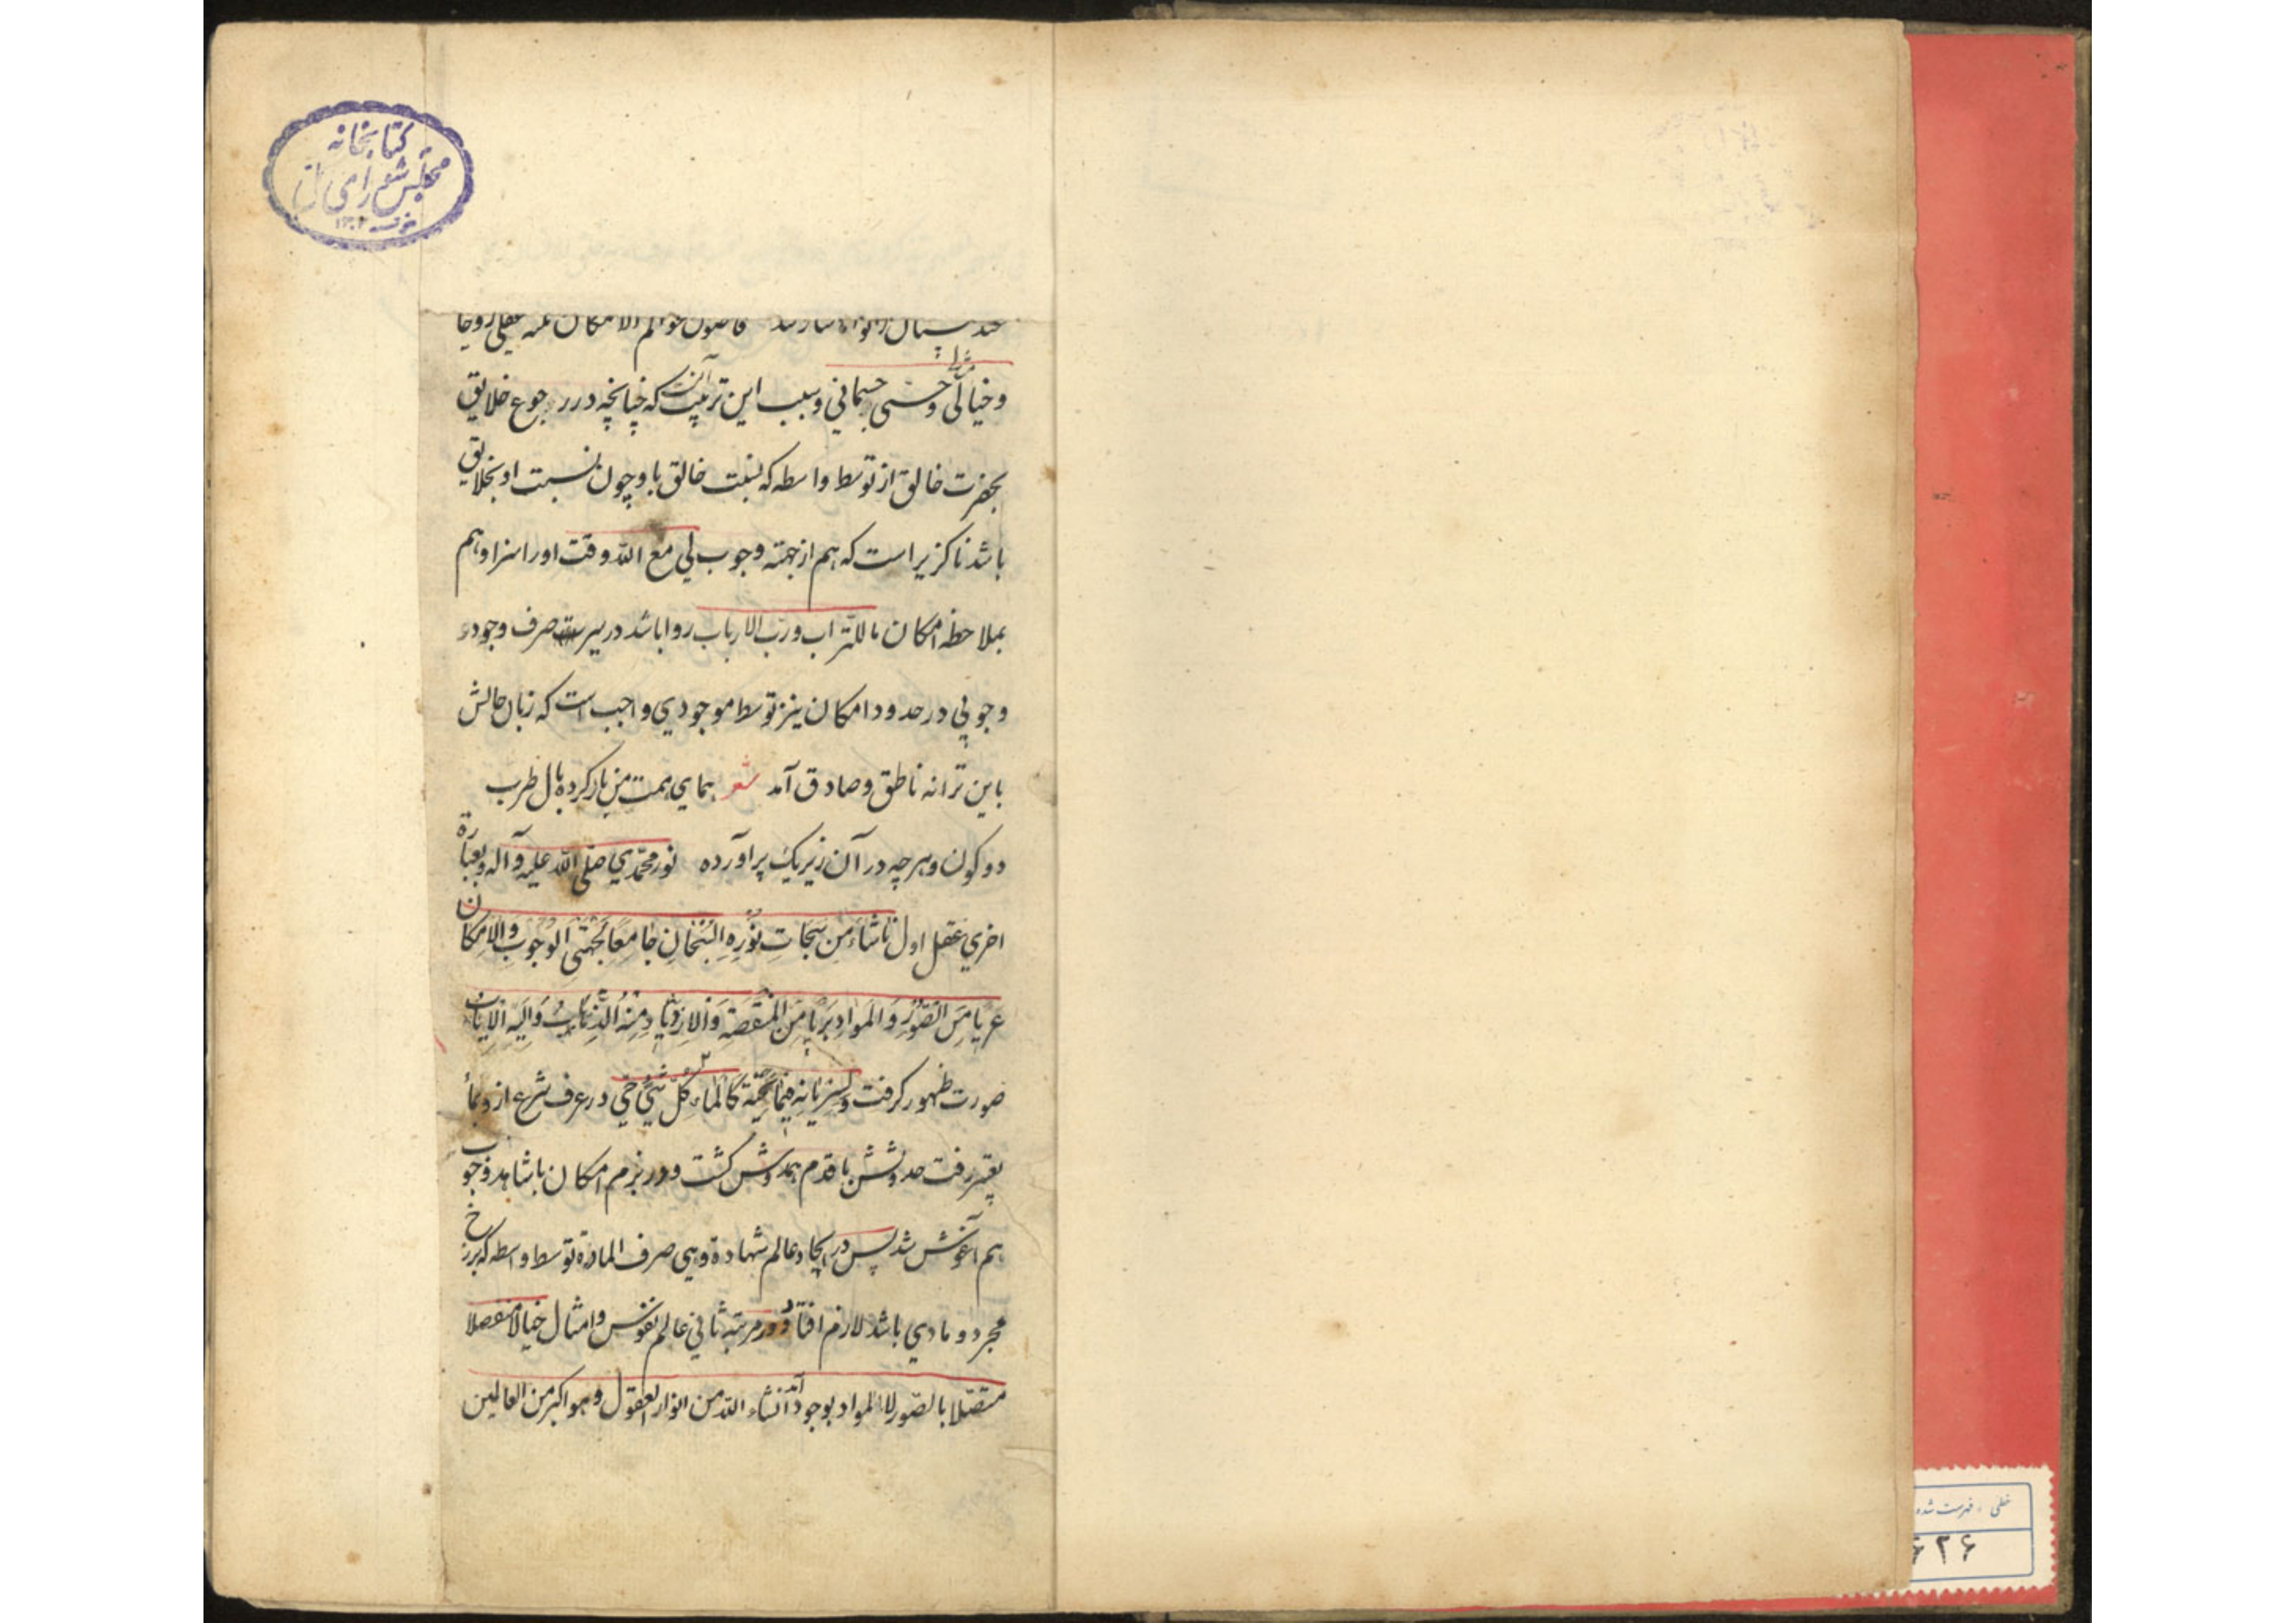 کتابخانه
مجلس شورای
فاصول عوالم الامکان ثلثه عقلی روحا
وخیالی وحسی جسمانی وسبب این ترتیب آنست که چنانچه در رجوع خلایق
بحضرت خالق از توسط واسطه که نسبت خالق باو چون نسبت او بخلایق
باشد ناکزیر است که هم از جهة وجوب لی مع الله وقت اورا سزا وهم
بملاحظه امکان ماللتراب ورب الارباب روا باشد در صرف وجود
وجوبی در حدود امکان نیز توسط موجودی واجب است که زبان حالش
باین ترانه ناطق وصادق آمد شعر همای همت من باز کرده بال طرب
دو کون وهر چه در آن زیر یک پر آورده نور محمدی صلی الله علیه وآله وبعبارة
اخری عقل اول ناشئا من سبحات نوره جامعا لجهتی الوجوب والامکان
عریا من الصور والمواد بریا من المنقصة والازدیاد منه الذهاب والیه الایاب
صورت ظهور کرفت ولسریانه فیما تحته کالماء کل شیئ حی در عرف شرع ازو بماء
تعبیر رفت حدوثش با قدم همدوش کشت ودر بزم امکان با شاهد وجوب
هم آغوش شد پس در ایجاد عالم شهادة وهی صرف المادة توسط واسطه که برزخ
مجرد ومادی باشد لازم افتاد ودر مرتبه ثانی عالم نفوس وامثال خیالا منفصلا
متصلا بالصور لا المواد بوجود آمد انشاء الله من انوار العقول وهو اکبر من العالمین
خطی ، فهرست شده